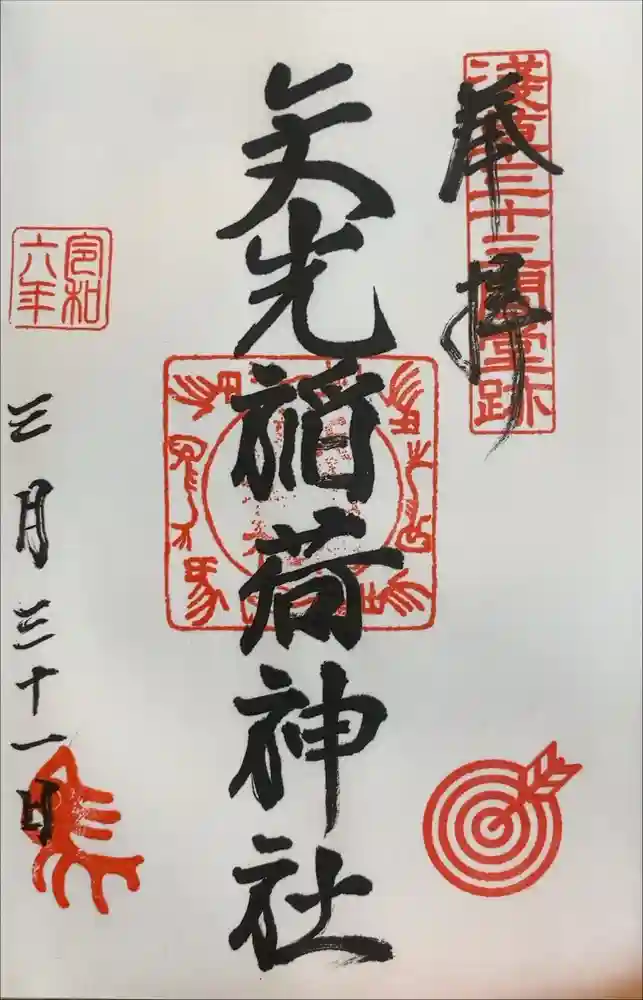 奉拝
淺草三十三間堂跡
矢先稲荷神社
令和
六年
三月三十一日